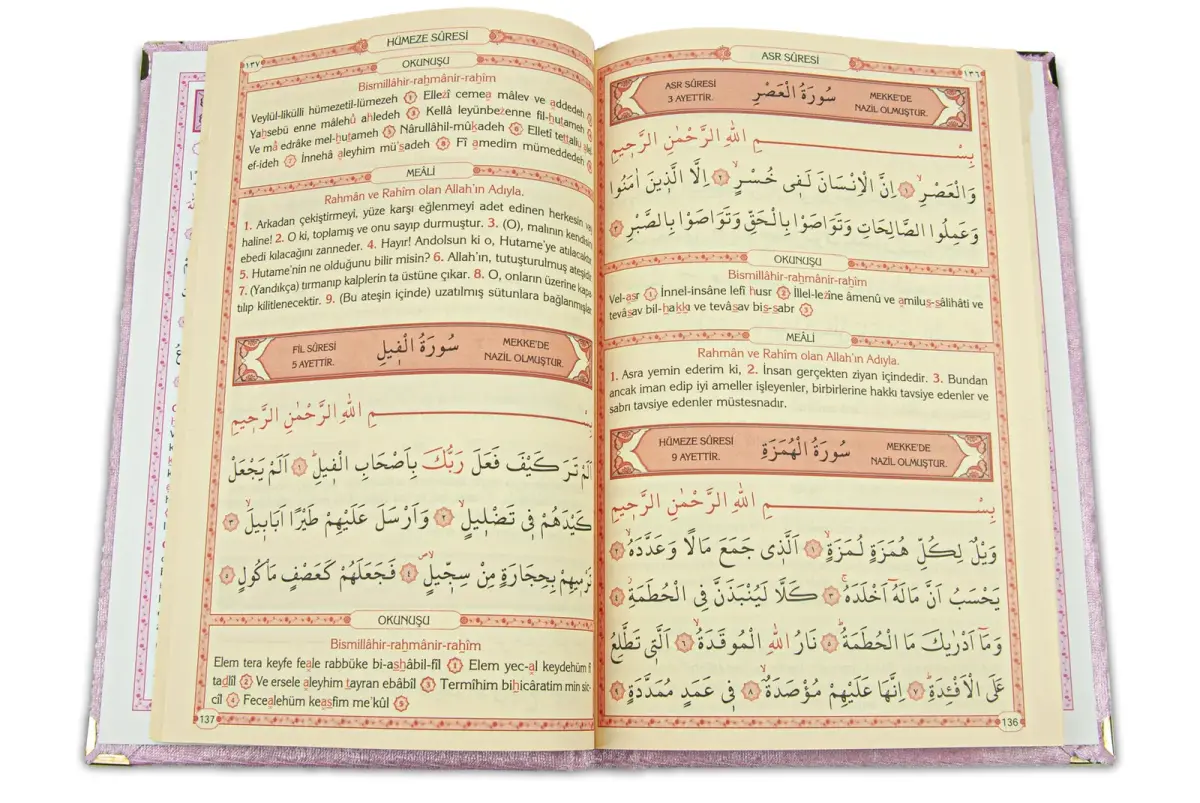 ASR SÛRESİ
١٣٦
ASR SÛRESİ
3 AYETTİR.
سُورَةُ الْعَصْرِ
MEKKE'DE
NAZİL OLMUŞTUR.
بِسْمِ اللّٰهِ الرَّحْمٰنِ الرَّح۪يمِ
وَالْعَصْرِۙ ﴿١﴾ اِنَّ الْاِنْسَانَ لَف۪ي خُسْرٍۙ ﴿٢﴾ اِلَّا الَّذ۪ينَ اٰمَنُوا
وَعَمِلُوا الصَّالِحَاتِ وَتَوَاصَوْا بِالْحَقِّ وَتَوَاصَوْا بِالصَّبْرِ ﴿٣﴾
OKUNUŞU
Bismillâhir-raḥmânir-raḥîm
Vel-asr ① İnnel-insâne lefî husr ② İllel-lezîne âmenû ve amiluṣ-ṣâlihâti ve
tevâsav bil-ḥaḳḳı ve tevâsav bis-sabr ③
MEÂLİ
Rahmân ve Rahîm olan Allah'ın Adıyla.
1. Asra yemin ederim ki, 2. İnsan gerçekten ziyan içindedir. 3. Bundan
ancak iman edip iyi ameller işleyenler, birbirlerine hakkı tavsiye edenler ve
sabrı tavsiye edenler müstesnadır.
HÜMEZE SÛRESİ
9 AYETTİR.
سُورَةُ الْهُمَزَةِ
MEKKE'DE
NAZİL OLMUŞTUR.
بِسْمِ اللّٰهِ الرَّحْمٰنِ الرَّح۪يمِ
وَيْلٌ لِكُلِّ هُمَزَةٍ لُمَزَةٍۙ ﴿١﴾ اَلَّذ۪ي جَمَعَ مَالًا وَعَدَّدَهُۙ ﴿٢﴾
يَحْسَبُ اَنَّ مَالَهُٓ اَخْلَدَهُۚ ﴿٣﴾ كَلَّا لَيُنْبَذَنَّ فِي الْحُطَمَةِۘ ﴿٤﴾
وَمَٓا اَدْرٰيكَ مَا الْحُطَمَةُۜ ﴿٥﴾ نَارُ اللّٰهِ الْمُوقَدَةُۙ ﴿٦﴾ اَلَّت۪ي تَطَّلِعُ
عَلَى الْاَفْـِٔدَةِۜ ﴿٧﴾ اِنَّهَا عَلَيْهِمْ مُؤْصَدَةٌۙ ﴿٨﴾ ف۪ي عَمَدٍ مُمَدَّدَةٍ ﴿٩﴾
136
HÜMEZE SÛRESİ
١٣٧
OKUNUŞU
Bismillâhir-raḥmânir-raḥîm
Veylül-likülli hümezetil-lümezeh ① Ellezî cemea mâlev ve addedeh ②
Yaḥsebü enne mâlehû ahledeh ③ Kellâ leyünbezenne fil-ḥuṭameh ④
Ve mâ edrâke mel-huṭameh ⑤ Nârullâhil-mûḳadeh ⑥ Elletî tettaliu
ef-ideh ⑦ İnnehâ aleyhim mü'sadeh ⑧ Fî amedim mümeddedeh ⑨
MEÂLİ
Rahmân ve Rahîm olan Allah'ın Adıyla.
1. Arkadan çekiştirmeyi, yüze karşı eğlenmeyi adet edinen herkesin vay
haline! 2. O ki, toplamış ve onu sayıp durmuştur. 3. (O), malının kendisini
ebedi kılacağını zanneder. 4. Hayır! Andolsun ki o, Hutame'ye atılacaktır.
5. Hutame'nin ne olduğunu bilir misin? 6. Allah'ın, tutuşturulmuş ateşidir.
7. (Yandıkça) tırmanıp kalplerin ta üstüne çıkar. 8. O, onların üzerine kapa
tılıp kilitlenecektir. 9. (Bu ateşin içinde) uzatılmış sütunlara bağlanmışlar
FİL SÛRESİ
5 AYETTİR.
سُورَةُ الْف۪يلِ
MEKKE'DE
NAZİL OLMUŞTUR.
بِسْمِ اللّٰهِ الرَّحْمٰنِ الرَّح۪يمِ
اَلَمْ تَرَ كَيْفَ فَعَلَ رَبُّكَ بِاَصْحَابِ الْف۪يلِۜ ﴿١﴾ اَلَمْ يَجْعَلْ
كَيْدَهُمْ ف۪ي تَضْل۪يلٍۙ ﴿٢﴾ وَاَرْسَلَ عَلَيْهِمْ طَيْرًا اَبَاب۪يلَۙ ﴿٣﴾
تَرْم۪يهِمْ بِحِجَارَةٍ مِنْ سِجّ۪يلٍۖ ﴿٤﴾ فَجَعَلَهُمْ كَعَصْفٍ مَأْكُولٍ ﴿٥﴾
OKUNUŞU
Bismillâhir-raḥmânir-raḥîm
Elem tera keyfe feale rabbüke bi-aṣḥâbil-fîl ① Elem yec-al keydehüm f
taḍlîl ② Ve ersele aleyhim ṭayran ebâbîl ③ Termîhim biḥicâratim min sic-
cîl ④ Fecealehüm keaṣfim me'kûl ⑤
137